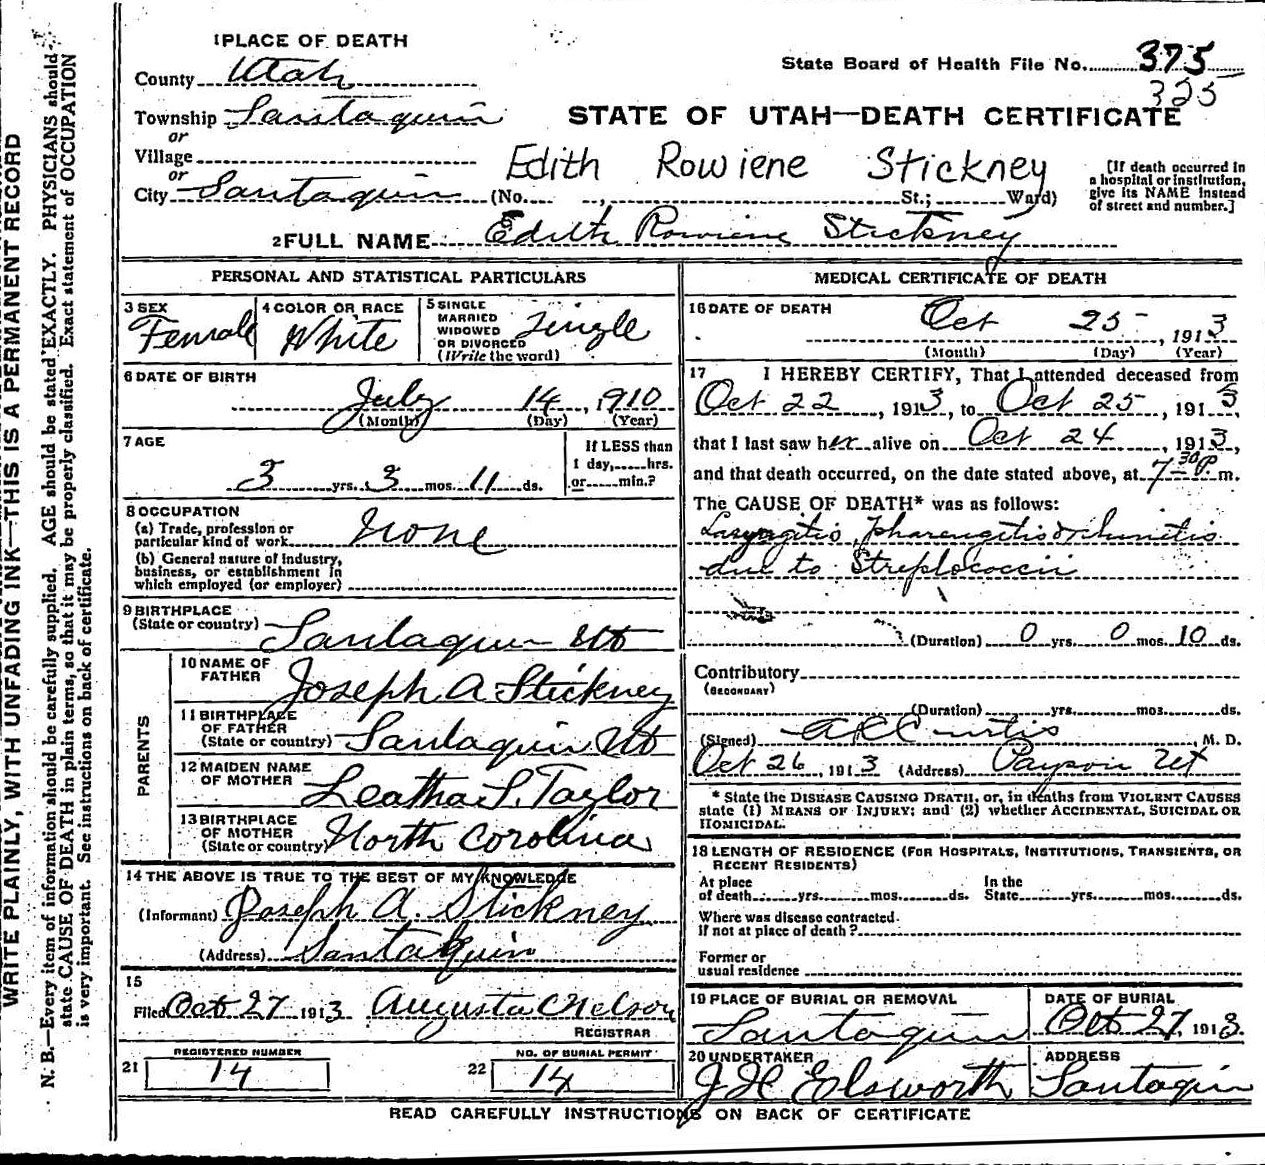 1 PLACE OF DEATH
County Utah
Township Santaquin
or
Village
or
City Santaquin (No. , St.; Ward)
State Board of Health File No. 375
325
STATE OF UTAH—DEATH CERTIFICATE
Edith Rowiene Stickney
[If death occurred in
a hospital or institution,
give its NAME instead
of street and number.]
2 FULL NAME Edith Rowiene Stickney
PERSONAL AND STATISTICAL PARTICULARS
3 SEX
Female
4 COLOR OR RACE
White
5 SINGLE
MARRIED
WIDOWED
OR DIVORCED
(Write the word)
Single
6 DATE OF BIRTH
July 14, 1910
(Month) (Day) (Year)
7 AGE
3 yrs. 3 mos. 11 ds.
If LESS than
1 day, hrs.
or min.?
8 OCCUPATION
(a) Trade, profession or
particular kind of work None
(b) General nature of industry,
business, or establishment in
which employed (or employer)
9 BIRTHPLACE
(State or country) Santaquin Ut
PARENTS
10 NAME OF
FATHER Joseph A Stickney
11 BIRTHPLACE
OF FATHER
(State or country) Santaquin Ut
12 MAIDEN NAME
OF MOTHER Leatha S. Taylor
13 BIRTHPLACE
OF MOTHER
(State or country) North Corolina
14 THE ABOVE IS TRUE TO THE BEST OF MY KNOWLEDGE
(Informant) Joseph A. Stickney
(Address) Santaquin
15
Filed Oct 27 1913 Augusta C Nelson
REGISTRAR
REGISTERED NUMBER
21 14
NO. OF BURIAL PERMIT
22 14
MEDICAL CERTIFICATE OF DEATH
16 DATE OF DEATH
Oct 25, 1913
(Month) (Day) (Year)
17 I HEREBY CERTIFY, That I attended deceased from
Oct 22, 1913, to Oct 25, 1913,
that I last saw her alive on Oct 24, 1913,
and that death occurred, on the date stated above, at 7-30 P. m.
The CAUSE OF DEATH* was as follows:
Laryngitis, pharengitis & rhinitis
due to Streplococcii
(Duration) 0 yrs. 0 mos. 10 ds.
Contributory
(SECONDARY)
(Duration) yrs. mos. ds.
(Signed) A L Curtis, M. D.
Oct 26, 1913 (Address) Payson Ut
* State the DISEASE CAUSING DEATH, or, in deaths from VIOLENT CAUSES
state (1) MEANS OF INJURY; and (2) whether ACCIDENTAL, SUICIDAL OR
HOMICIDAL.
18 LENGTH OF RESIDENCE (FOR HOSPITALS, INSTITUTIONS, TRANSIENTS, OR
RECENT RESIDENTS)
At place
of death yrs. mos. ds.
In the
State yrs. mos. ds.
Where was disease contracted
if not at place of death?
Former or
usual residence
19 PLACE OF BURIAL OR REMOVAL
Santaquin
DATE OF BURIAL
Oct 27, 1913
20 UNDERTAKER
J H Elsworth
ADDRESS
Santaquin
READ CAREFULLY INSTRUCTIONS ON BACK OF CERTIFICATE
WRITE PLAINLY, WITH UNFADING INK—THIS IS A PERMANENT RECORD
N. B.—Every item of information should be carefully supplied. AGE should be stated EXACTLY. PHYSICIANS should
state CAUSE OF DEATH in plain terms, so that it may be properly classified. Exact statement of OCCUPATION
is very important. See instructions on back of certificate.